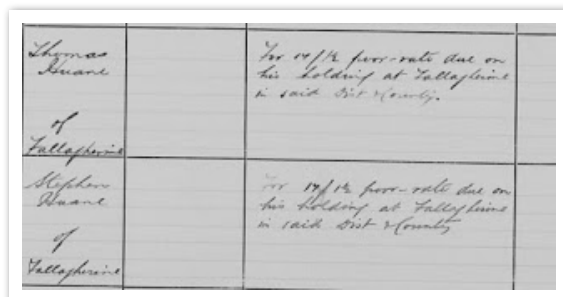 Thomas
Huane
of
Fallagherine
For 14/1½ poor-rate due on
his holding at Fallagherine
in said Dist & County.
Stephen
Huane
of
Fallagherine
For 14/1½ poor-rate due on
his holding at Fallagherine
in said Dist & County